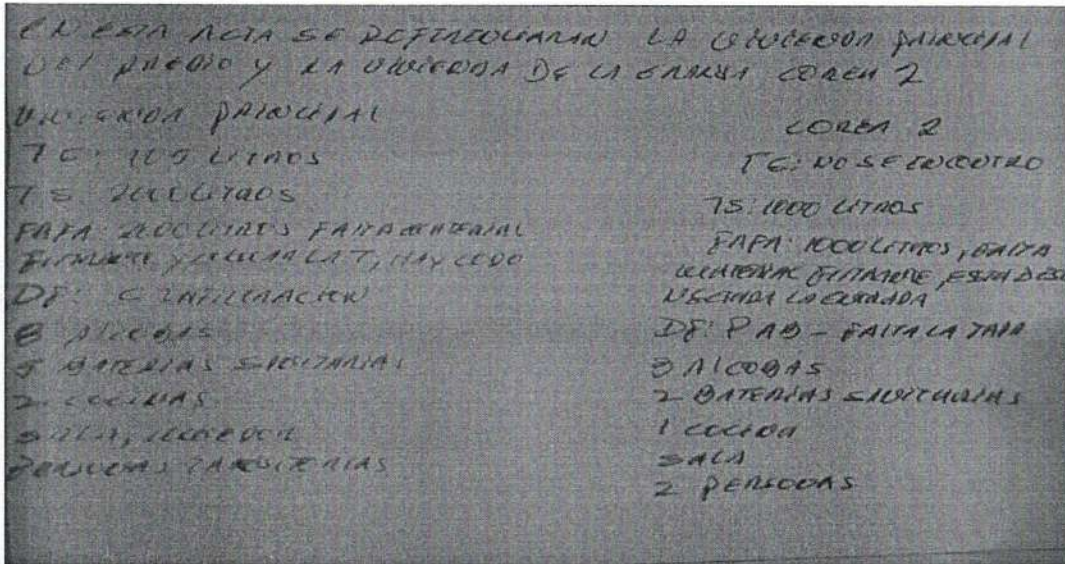 EN ESTA ACTA SE REFERENCIARAN LA VIVIENDA PRINCIPAL
DEL PREDIO Y LA VIVIENDA DE LA GRANJA COREA 2
VIVIENDA PRINCIPAL
TG: 105 LITROS
TS: 2000 LITROS
FAFA: 2000 LITROS FALTA MATERIAL
FILTRANTE Y LA T, HAY CODO
DF: C INFILTRACION
8 ALCOBAS
5 BATERIAS SANITARIAS
2 COCINAS
SALA, COMEDOR
PERSONAS TRANSITORIAS
COREA 2
TG: NO SE ENCONTRO
TS: 1000 LITROS
FAFA: 1000 LITROS, FALTA
MATERIAL FILTRANTE, ESTA DESCO
NECTADA LA ENTRADA
DF: PAB - FALTA LA TAPA
3 ALCOBAS
2 BATERIAS SANITARIAS
1 COCINA
SALA
2 PERSONAS